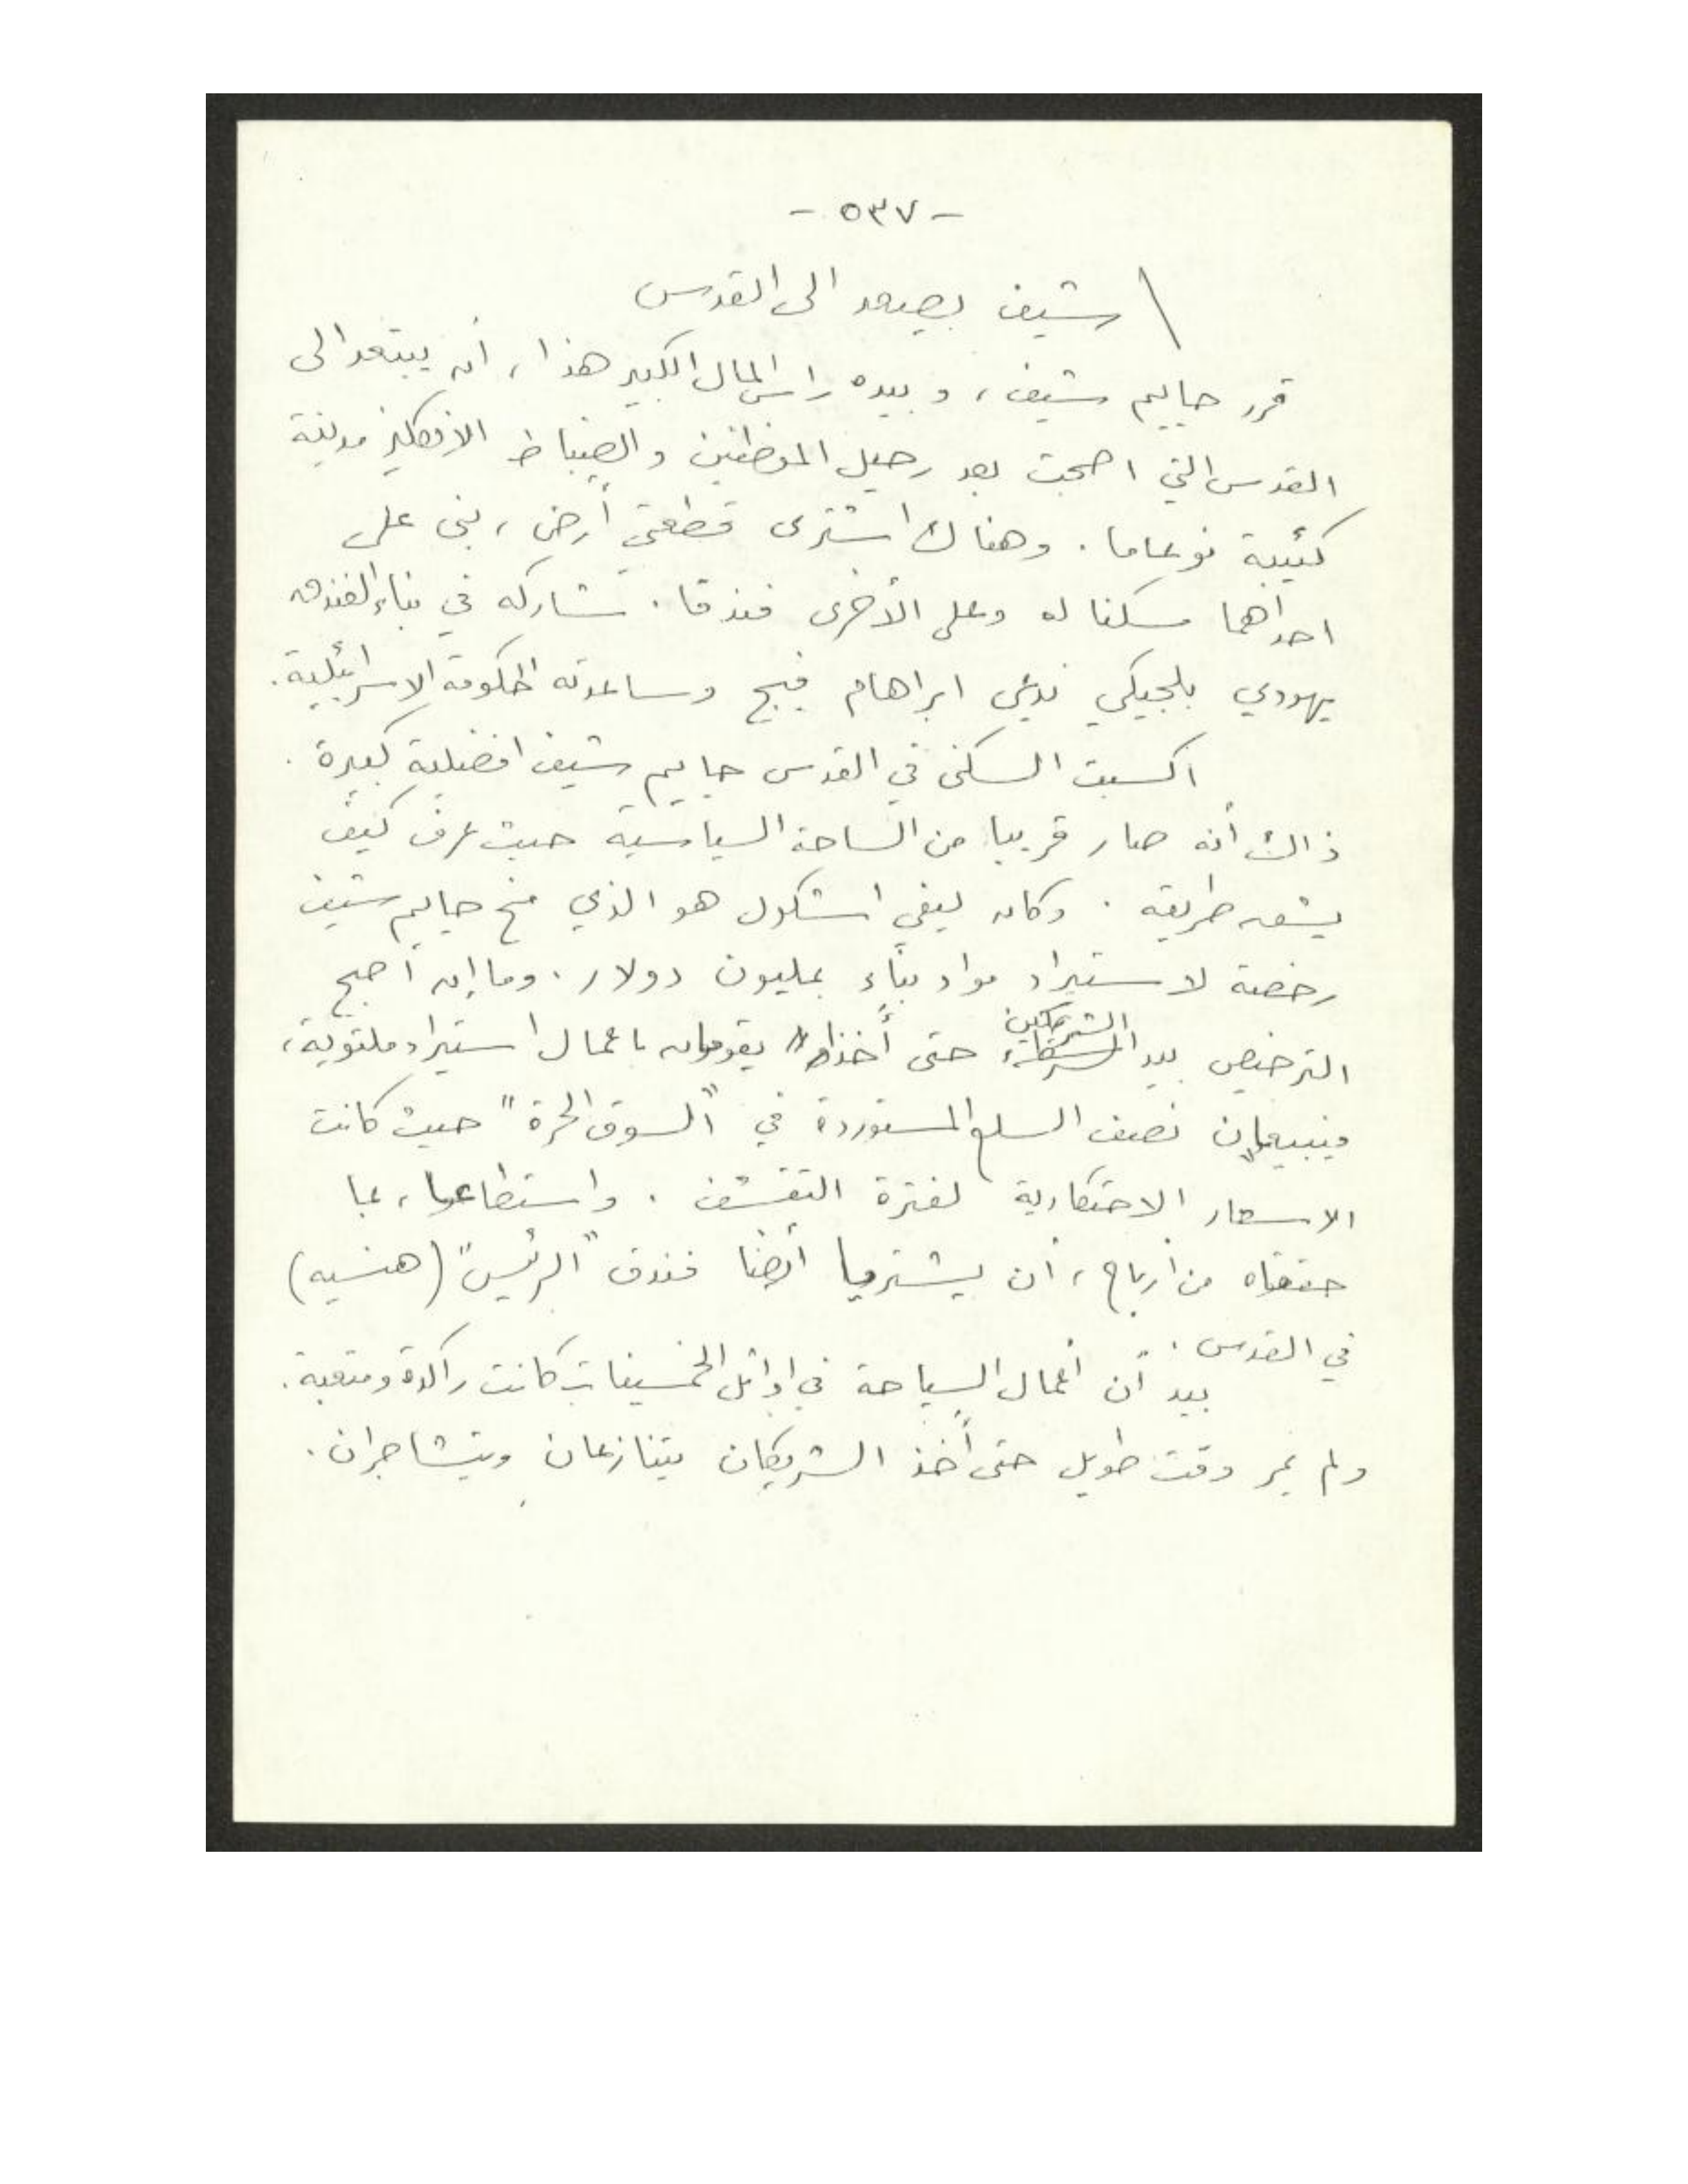 - ٥٣٧ -
شيف يصعد الى القدس
قرر حاييم شيف، وبيده راس المال الكبير هذا، أن يبتعد الى
القدس التي اصبحت بعد رحيل الموظفين والضباط الانكليز مدينة
كئيبة نوعاما. وهناك اشترى قطعتي أرض، بنى على
احداهما مسكنا له وعلى الأخرى فندقا. شاركه في بناء الفندق
يهودي بلجيكي يدعى ابراهام وساعدته الحكومة الاسرائيلية.
اكسبت السكنى في القدس حاييم شيف افضلية كبيرة.
ذالك أنه صار قريبا من الساحة السياسية حيث عرف كيف
يشق طريقه. وكان ليفي اشكول هو الذي منح حاييم شيف
رخصة لاستيراد مواد بناء بمليون دولار. وما إن أصبح
الترخيص بيد الشريكين حتى أخذا يقومان باعمال استيراد ملتوية،
فيبيعان نصف السلع المستوردة في "السوق الحرة" حيث كانت
الاسعار الاحتكارية لفترة التقشف. واستطاعا، بما
حققاه من أرباح، ان يشتريا أيضا فندق "الرئيس" (هنسيه)
في القدس.
بيد أن أعمال السياحة في اوائل الخمسينات كانت راكدة ومتعبة.
ولم يمر وقت طويل حتى أخذ الشريكان يتنازعان ويتشاجران.